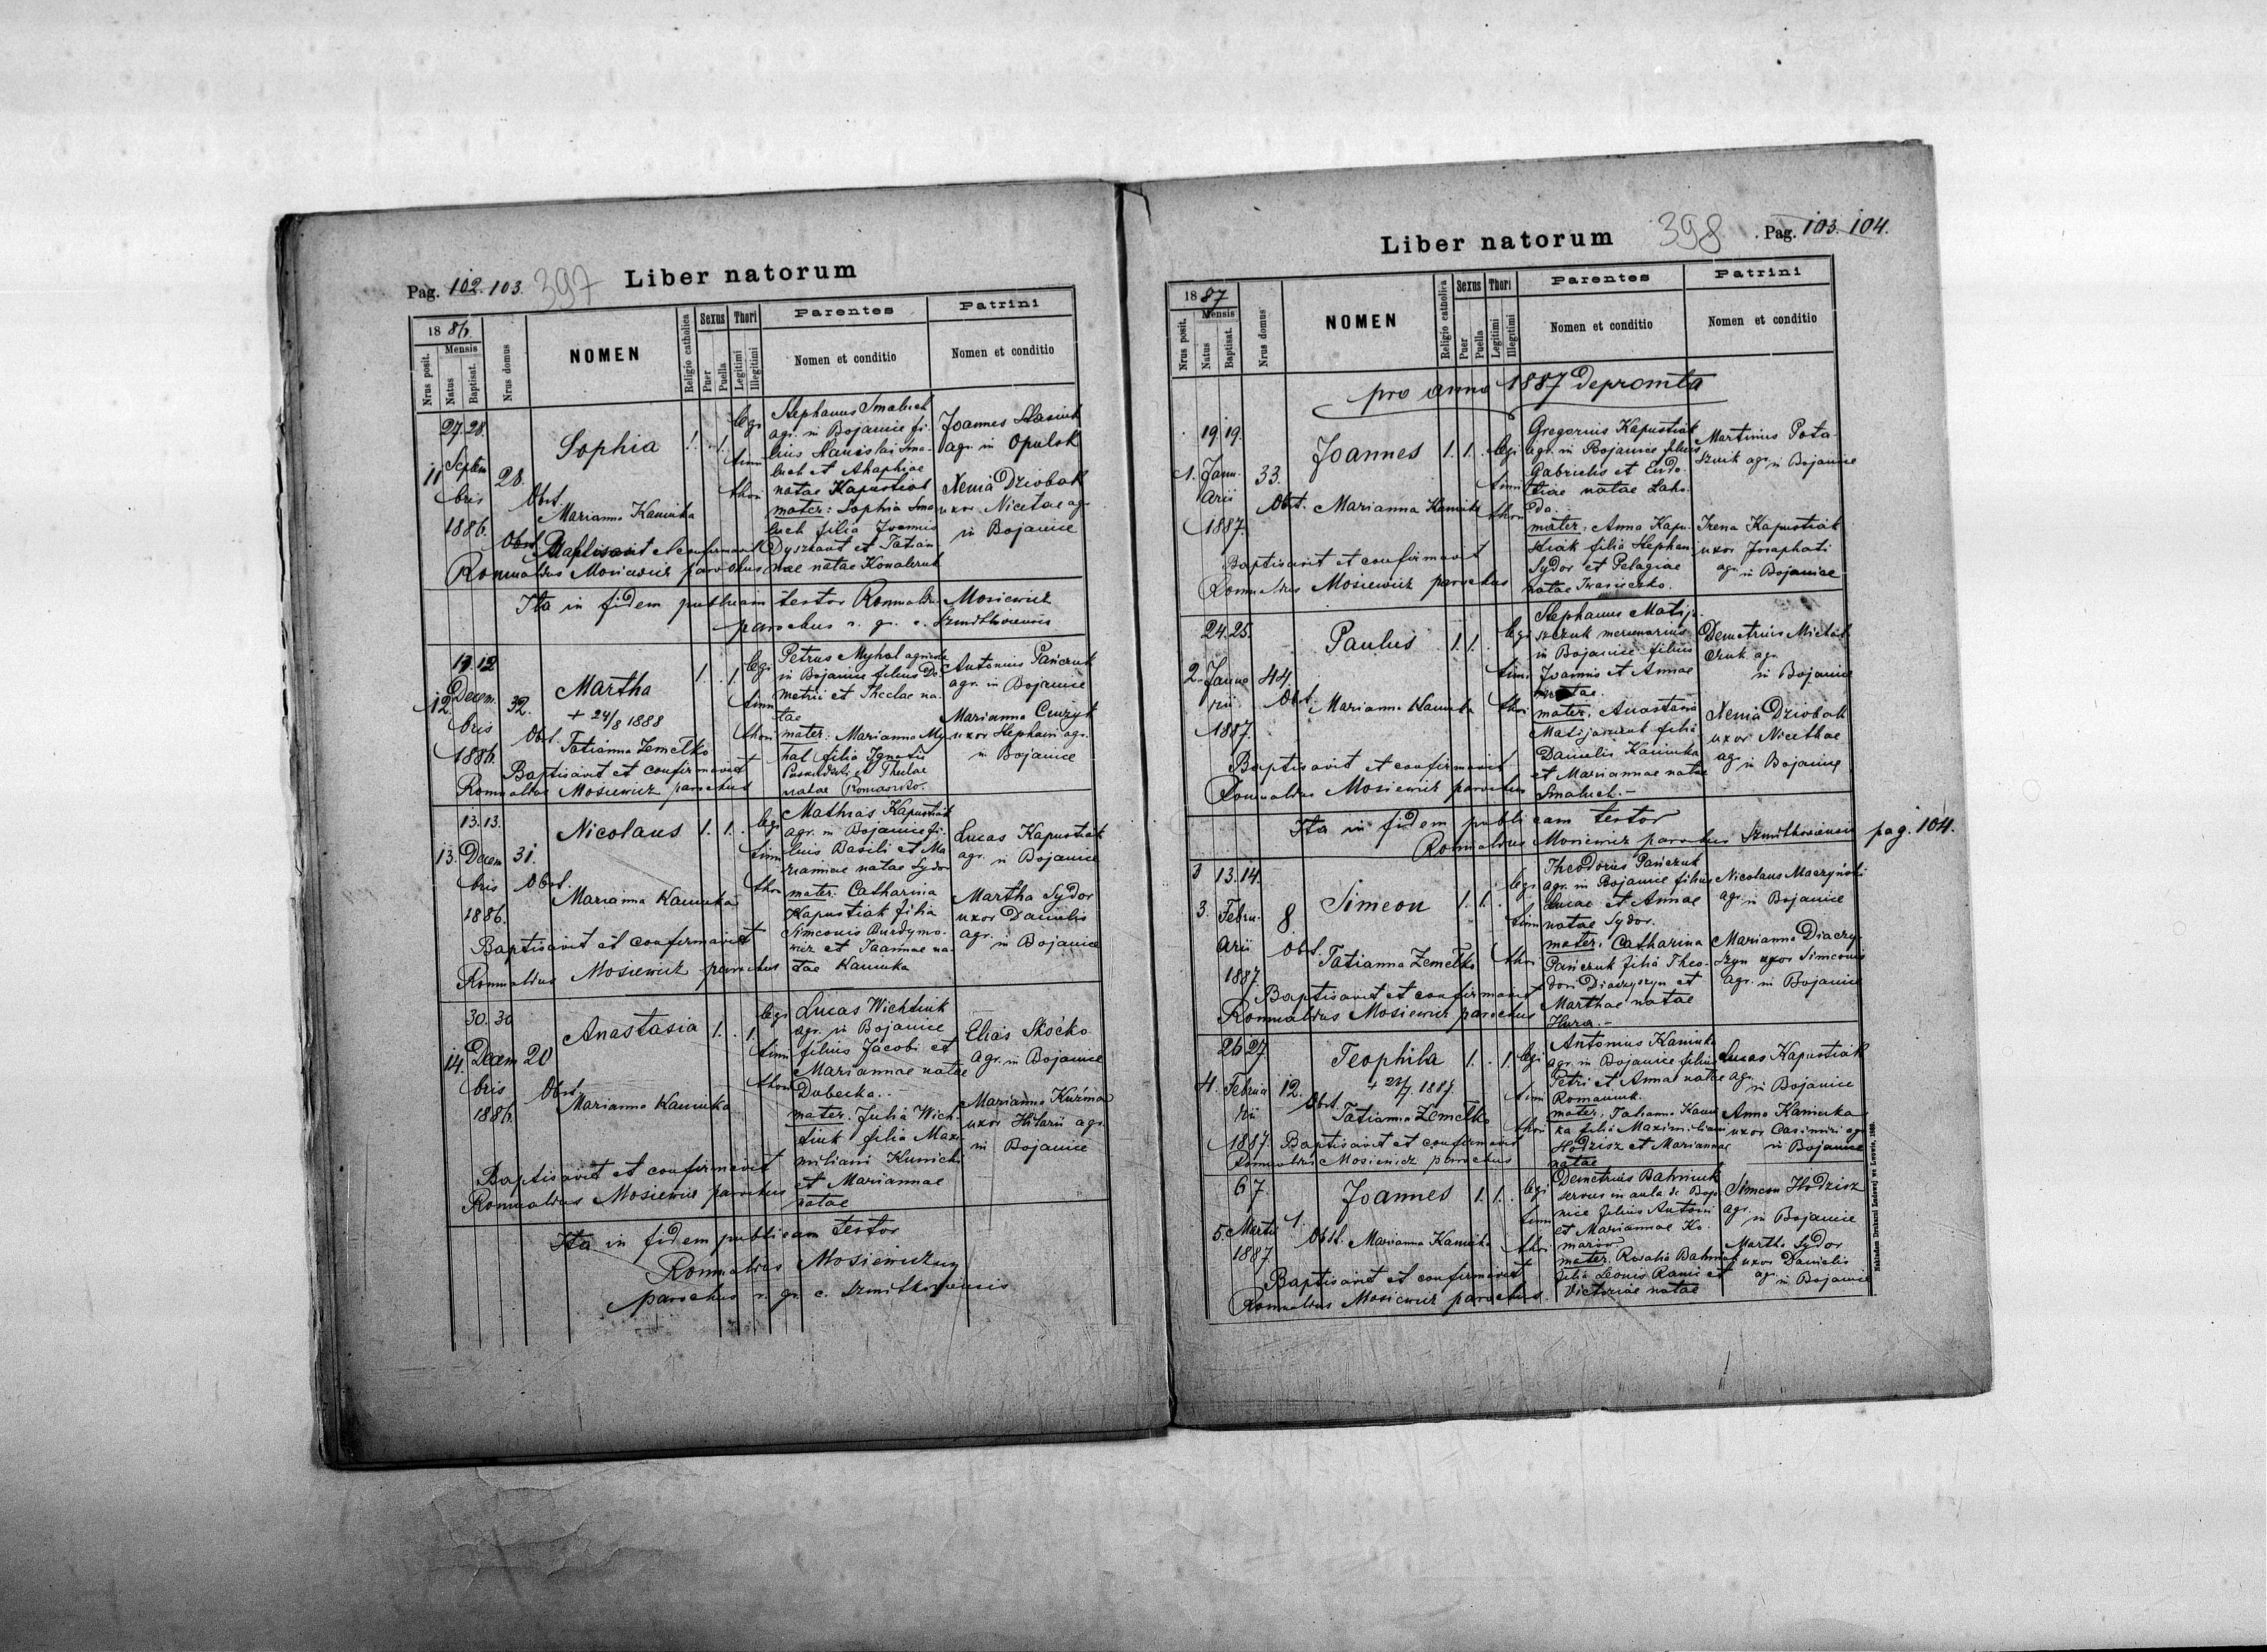 Pag. 102. 103. 397 Liber natorum
1886.
Nrus posit.
Mensis
Natus
Baptisat.
Nrus domus
NOMEN
Religio catholica
Sexus
Puer
Puella
Thori
Legitimi
Illegitimi
Parentes
Nomen et conditio
Patrini
Nomen et conditio
11
27. 28.
Septem
bris
1886.
28.
Sophia
1. . 1.
legi
timi
thori
Obst.
Marianna Kaminka
Baptisavit et confirmavit
Romualdus Mosiewicz parochus
Stephanus Smaluch
agr. in Bojanice fi-
lius Stanislai Sma-
luch et Ahaphiae
natae Kapustiak
mater: Sophia Sma
luch filia Joannis
Dyszkant et Tatian
nae natae Kowalczuk
Joannes Stasiuk
agr. in Opulsk
Xenia Dziobak
uxor Nicetae ag.
in Bojanice
Ita in fidem publicam testor Romuald. Mosiewicz
parochus r. gr. c. Szmitkoviensis
12.
12
Decem.
bris
1886.
32.
Martha
+ 24/8 1888
1. . 1.
legi
timi
thori
Obst.
Tatianna Zemełko
Baptisavit et confirmavit
Romualdus Mosiewicz parochus
Petrus Myhal agricola
in Bojanice filius De-
metrii et Theclae na-
tae
mater: Marianna My
hal filia Ignatii
et Theclae
natae
Antonius Pańczuk
agr. in Bojanice
Marianna
uxor Stephani agr.
in Bojanice
13.
13. 13.
Decem
bris
1886.
31.
Nicolaus
1. 1. .
legi
timi
thori
Obst.
Marianna Kaminka
Baptisavit et confirmavit
Romualdus Mosiewicz parochus
Mathias Kapustiak
agr. in Bojanice fi-
lius Basili et Ma
riannae natae Sydor
mater: Catharina
Kapustiak filia
Simeonis Burdymo-
wicz et Joannae na-
tae Kaminka
Lucas Kapustiak
agr. in Bojanice
Martha Sydor
uxor Danielis
agr.
in Bojanice
14.
30. 30
Decem
bris
1886.
20
Anastasia
1. . 1.
legi
timi
thori
Obst.
Marianna Kaminka
Baptisavit et confirmavit
Romualdus Mosiewicz parochus
Lucas Wichtiuk
agr. in Bojanice
filius Jacobi et
Mariannae natae
Dubecka.
mater: Julia Wich-
tiuk filia Maxi-
miliani Kunicki
et Mariannae
natae
Elias Skoćko
agr. in Bojanice
Marianna Kuźma
uxor Hilarii agr.
in Bojanice
Ita in fidem publicam testor
Romualdus Mosiewicz
parochus r. gr. c. Szmitkoviensis
Liber natorum 398 Pag. 103. 104.
1887
Nrus posit.
Mensis
Natus
Baptisat.
Nrus domus
NOMEN
Religio catholica
Sexus
Puer
Puella
Thori
Legitimi
Illegitimi
Parentes
Nomen et conditio
Patrini
Nomen et conditio
pro anno 1887 depromta
1.
19. 19.
Janu-
arii
1887.
33.
Joannes
1. 1. .
legi
timi
thori
Obst. Marianna Kaminka
Baptisavit et confirmavit
Romualdus Mosiewicz parochus
Gregorius Kapustiak
agr. in Bojanice filius
Gabrielis et Eudo-
tiae natae Laho-
da.
mater: Anna Kapu-
stiak filia Stephani
Sydor et Pelagiae
natae Iwasieczko.
Martinus Pota-
szuik agr. in Bojanice
Irena Kapustiak
uxor Josaphati
agr. in Bojanice
2.
24. 25.
Janua
rii
1887.
44.
Paulus
1. 1. .
legi
timi
thori
Obst. Marianna Kaminka
Baptisavit et confirmavit
Romualdus Mosiewicz parochus
Stephanus Matij-
szczuk mercenarius
in Bojanice filius
Joannis et Annae
natae.
mater: Anastasia
filia
Danielis Kaminka
et Mariannae natae
Smaluch.
Demetrius Michal
czuk agr.
in Bojanice
Xenia Dziobak
uxor Nicethae
ag. in Bojanice
Ita in fidem publicam testor
Romualdus Mosiewicz parochus Szmitkoviensis pag. 104.
3.
13. 14.
Febru-
arii
1887.
8.
Simeon
1. 1. .
legi
timi
thori
Obst.
Tatianna Zemełko
Baptisavit et confirmavit
Romualdus Mosiewicz parochus
Theodorus Pańczuk
agr. in Bojanice filius
Lucae et Annae
natae Sydor.
mater: Catharina
Pańczuk filia Theo-
dori Diaczyszyn et
Marthae natae
Hura.
Nicolaus Maczyński
agr. in Bojanice
Marianna Diaczy-
szyn uxor Simeonis
agr. in Bojanice
4.
26 27
Februa
rii
1887.
12.
Teophila
1. . 1.
legi
timi
thori
Obst.
Tatianna Zemełko
Baptisavit et confirmavit
Romualdus Mosiewicz parochus
Antonius Kaminka
agr. in Bojanice filius
Petri et Annae natae
Romaniuk.
mater: Tatianna Kamin
ka filia Maximiliani
Hodzisz et Mariannae
natae
Lucas Kapustiak
agr.
in Bojanice
Anna Kaminka
uxor Casimiri agr.
in Bojanice
5.
6 7.
Martii
1887
1.
Joannes
1. 1. .
legi
timi
thori
Obst. Marianna Kaminka
Baptisavit et confirmavit
Romualdus Mosiewicz parochus.
Demetrius Bahniuk
servus in aula de Boja
nice filius Antonii
et Mariannae Ko-
marow
mater: Rosalia Bahniuk
filia Leonis Ranic et
Victoriae natae
Simeon Hodzisz
agr.
in Bojanice
Martha Sydor
uxor Danielis
agr.
in Bojanice
Nakładem Drukarni Ludowej we Lwowie, 1889.